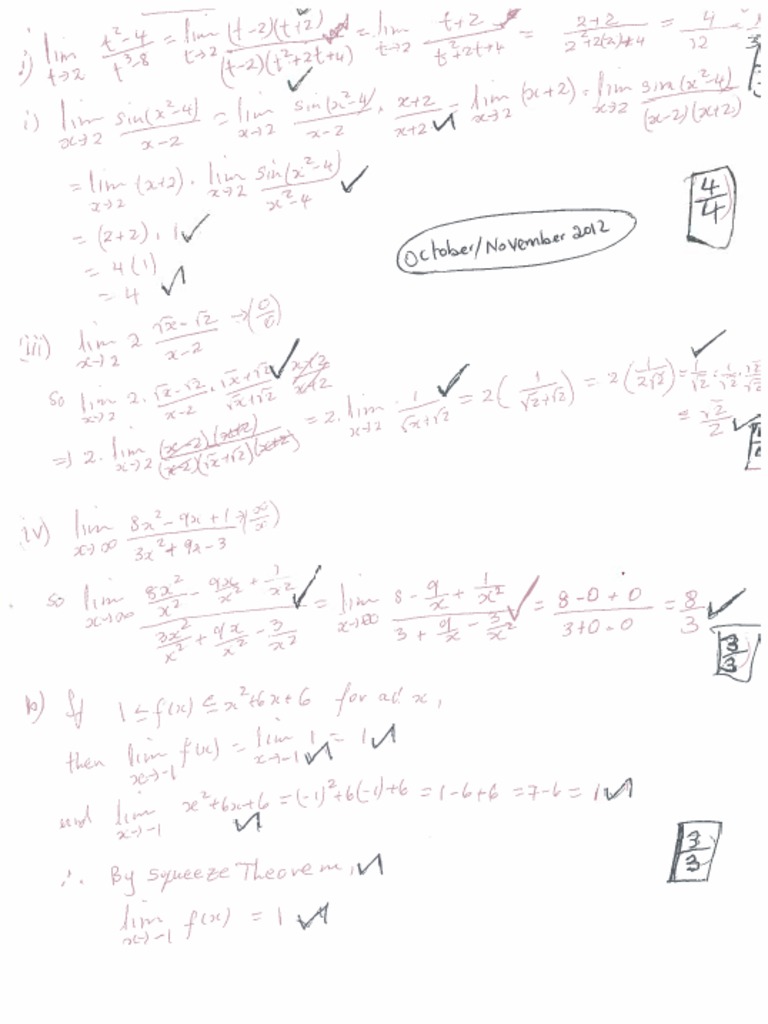 i) lim t→2 (t²-4)/(t³-8) = lim t→2 (t-2)(t+2)/((t-2)(t²+2t+4)) = lim t→2 (t+2)/(t²+2t+4) = (2+2)/(2²+2(2)+4) = 4/12
i) lim x→2 sin(x²-4)/(x-2) = lim x→2 sin(x²-4)/(x-2) · (x+2)/(x+2) = lim x→2 (x+2) · lim x→2 sin(x²-4)/((x-2)(x+2))
= lim x→2 (x+2) · lim x→2 sin(x²-4)/(x²-4)
4/4
= (2+2) · 1
October/November 2012
= 4(1)
= 4
iii) lim x→2 2 (√x-√2)/(x-2) → (0/0)
so lim x→2 2 · (√x-√2)/(x-2) · (√x+√2)/(√x+√2)
⇒ 2 · lim x→2 (x-2)(x+2)/((x-2)(√x+√2)(x+2)) = 2 · lim x→2 1/(√x+√2) = 2(1/(√2+√2)) = 2(1/(2√2)) = 1/√2 = 1/√2 · √2/√2
= √2/2
iv) lim x→∞ (8x²-9x+1)/(3x²+9x-3) → (∞/∞)
so lim x→∞ (8x²/x² - 9x/x² + 1/x²)/(3x²/x² + 9x/x² - 3/x²) = lim x→∞ (8 - 9/x + 1/x²)/(3 + 9/x - 3/x²) = (8-0+0)/(3+0-0) = 8/3
3/3
b) If 1 ≤ f(x) ≤ x²+6x+6 for all x,
then lim x→-1 f(x) = lim x→-1 1 = 1
and lim x→-1 x²+6x+6 = (-1)²+6(-1)+6 = 1-6+6 = 7-6 = 1
3/3
∴ By squeeze Theorem,
lim x→-1 f(x) = 1